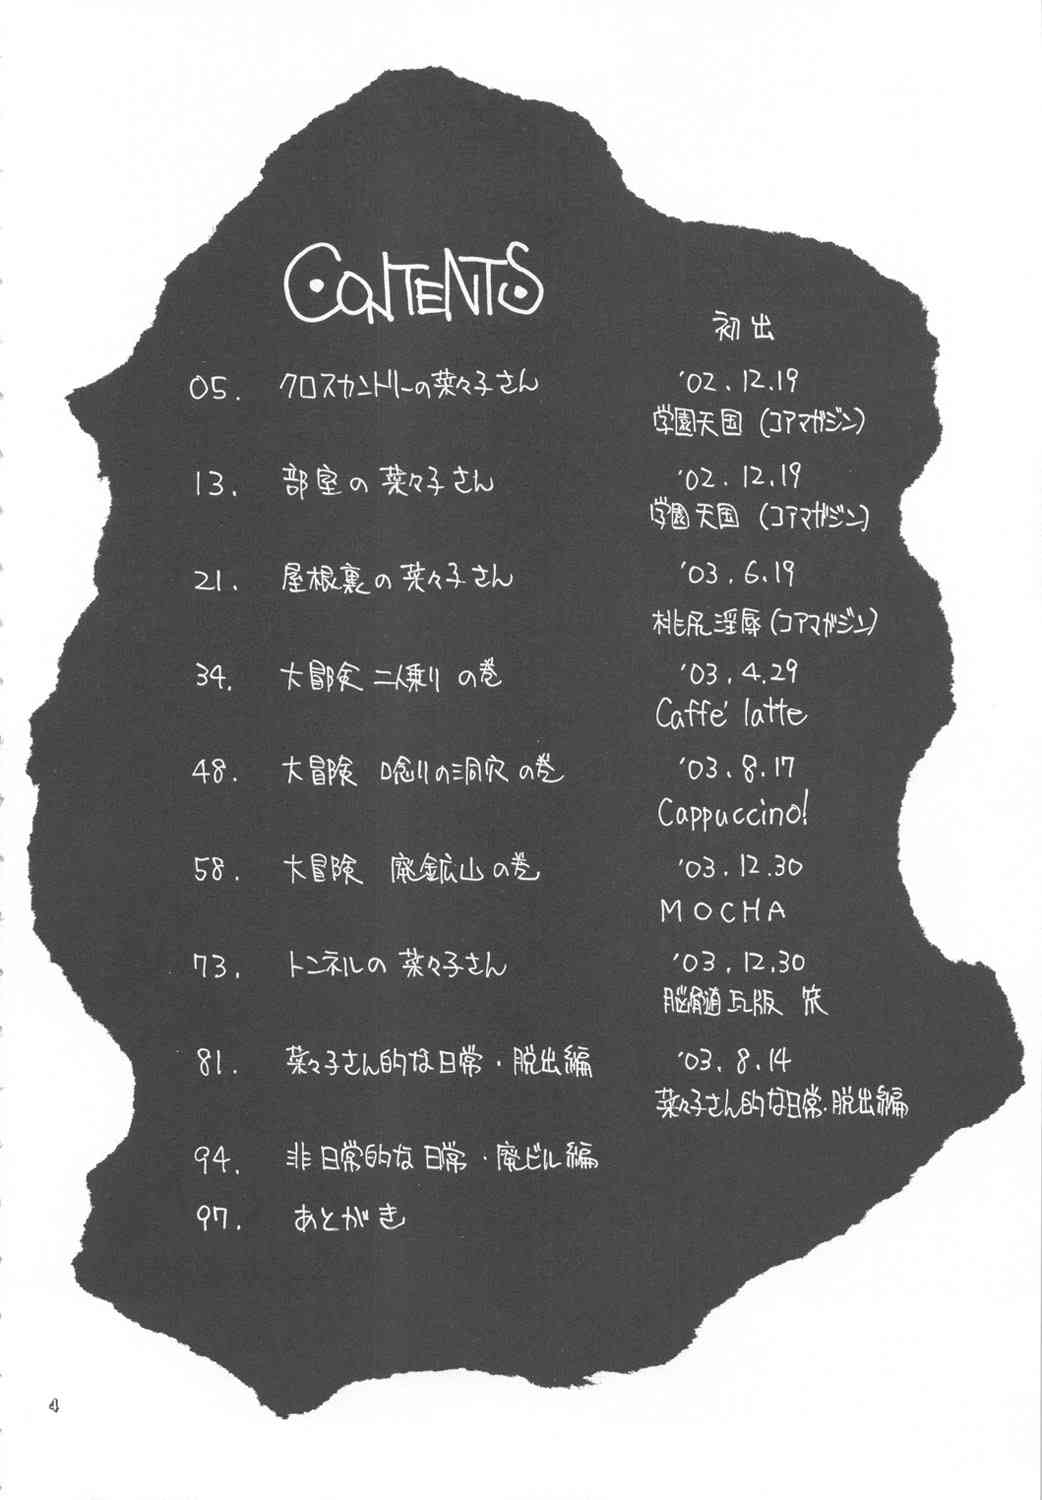 CONTENTS
初出
05. クロスカントリーの菜々子さん '02.12.19
学園天国 (コアマガジン)
13. 部室の菜々子さん '02.12.19
学園天国 (コアマガジン)
21. 屋根裏の菜々子さん '03.6.19
桃尻淫辱 (コアマガジン)
34. 大冒険 二人乗り の巻 '03.4.29
Caffe' latte
48. 大冒険 唸りの洞穴 の巻 '03.8.17
Cappuccino!
58. 大冒険 廃鉱山の巻 '03.12.30
MOCHA
73. トンネルの菜々子さん '03.12.30
脳髄瓦版
81. 菜々子さん的な日常・脱出編 '03.8.14
菜々子さん的な日常・脱出編
94. 非日常的な日常・廃ビル編
97. あとがき
4